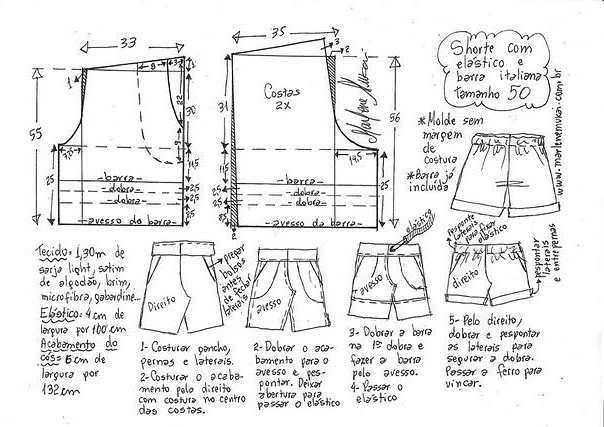 33
35
3
2
1
8
3
22
9
30
55
7,5
25
11,5
2,5
2,5
-barra-
-dobra-
-dobra-
-avesso da barra-
Costas
2X
31
11,5
25
56
14,5
25
2
-barra-
-dobra-
-dobra-
-avesso da barra-
Marlene Mukai
Shorte com
elástico e
barra italiana
tamanho 50
www.marlenemukai.com.br
*Molde sem
margem
de
costura
*Barra já
incluída
Tecido= 1,30m de
sarja light, satim
de algodão, brim,
microfibra, gabardine...
Elástico: 4 cm de
largura por 100 cm
Acabamento do
cós= 6 cm de
largura por
132 cm
Direito
pregar
bolsos
antes
de fechar
laterais
1- Costurar gancho,
pernas e laterais.
2- Costurar o acaba-
mento pelo direito
com costura no centro
das costas.
avesso
2- Dobrar o aca-
bamento para o
avesso e pes-
pontar. Deixar
abertura para
passar o elástico
elástico
avesso
3- Dobrar a barra
na 1ª dobra e
fazer a barra
pelo avesso.
4- Passar o
elástico
pesponte
laterais
para fixar
elástico
direito
pespontar
laterais
e entrepernas
5- Pelo direito,
dobrar e pespontar
as laterais para
segurar a dobra.
Passar a ferro para
vincar.